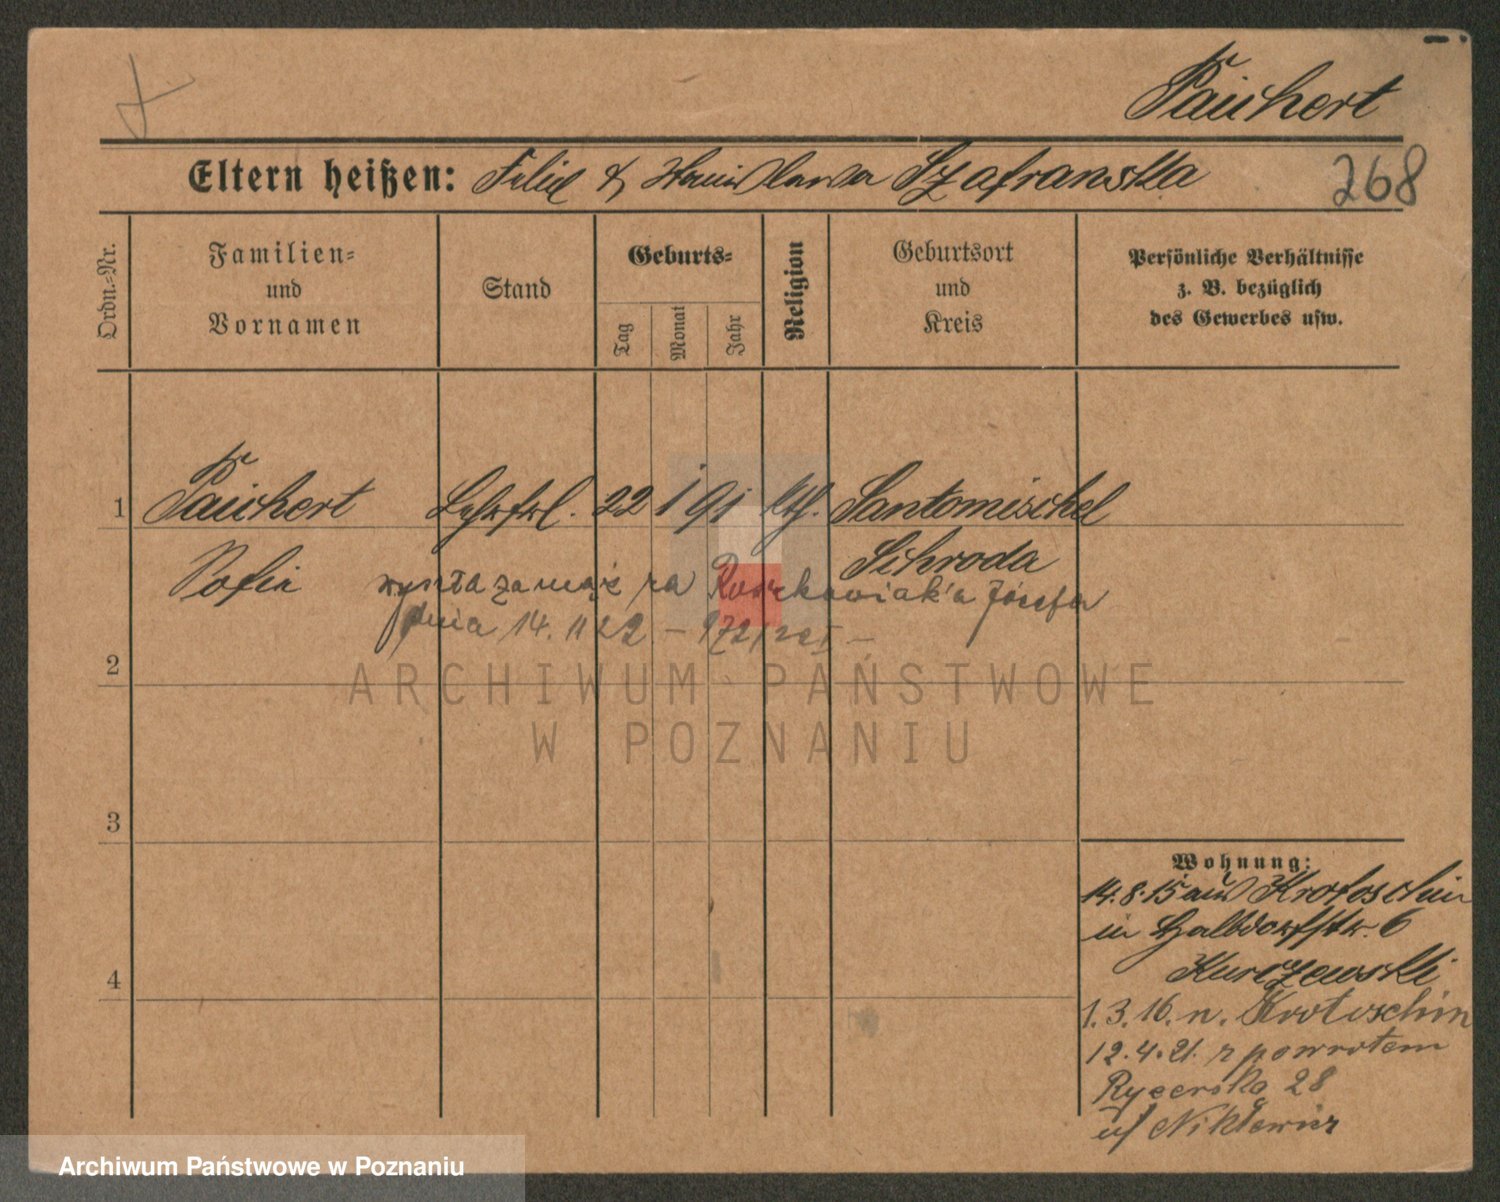 Paichert
Eltern heißen: Felix & Stanislawa Szafranska
268
Ordn.-Nr.
Familien-
und
Vornamen
Stand
Geburts-
Tag
Monat
Jahr
Religion
Geburtsort
und
Kreis
Persönliche Verhältnisse
z. B. bezüglich
des Gewerbes usw.
1 Paichert Lehrfrl. 22 1 91 kth. Santomischel
Sofia Schroda
wyszła zamąż za Roszkowiak'a Józefa
dnia 14. 11 22
2
3
4
Wohnung:
14.8.15 aus Krotoschin
in Halbdorfstr. 6
Kurczewski
1.3.16. n. Krotoschin
12.4.21. z powrotem
Rycerska 28
u/ Niklewicz
ARCHIWUM PAŃSTWOWE
W POZNANIU
Archiwum Państwowe w Poznaniu